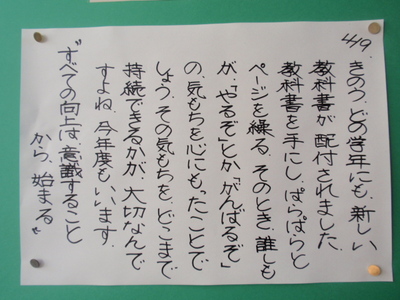 4/19.
きのう、どの学年にも、新しい
教科書が配付されました。
教科書を手にし、ぱらぱらと
ページを繰る。そのとき、誰しも
が、「やるぞ」とか「がんばるぞ」
の、気もちを心にもったことで
しょう。その気もちを、どこまで
持続できるかが、大切なんで
すよね。今年度もいいます。
"すべての向上は、意識すること
から、始まる"